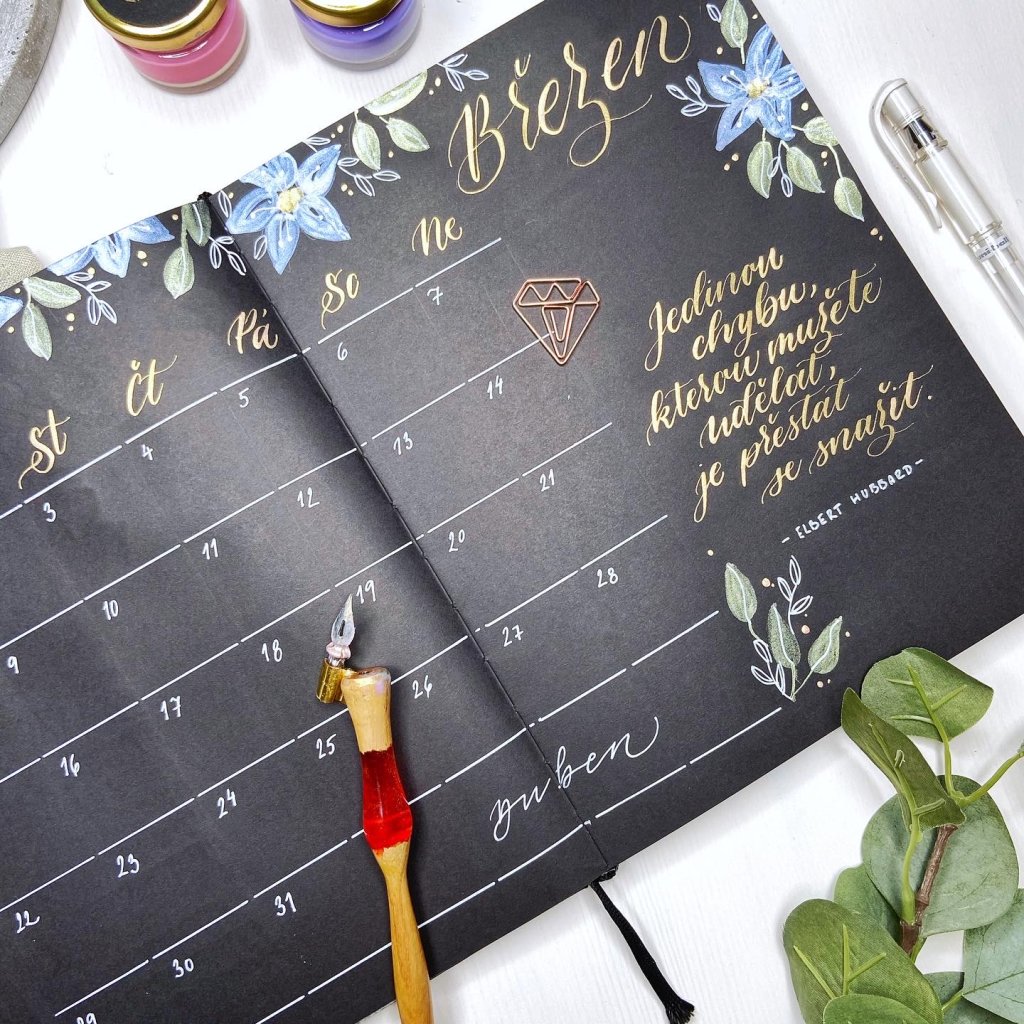 Březen
St Čt Pá So Ne
3 4 5 6 7
9 10 11 12 13 14
16 17 18 19 20 21
22 23 24 25 26 27 28
29 30 31
Duben
Jedinou
chybu,
kterou můžete
udělat,
je přestat
se snažit.
- ELBERT HUBBARD -